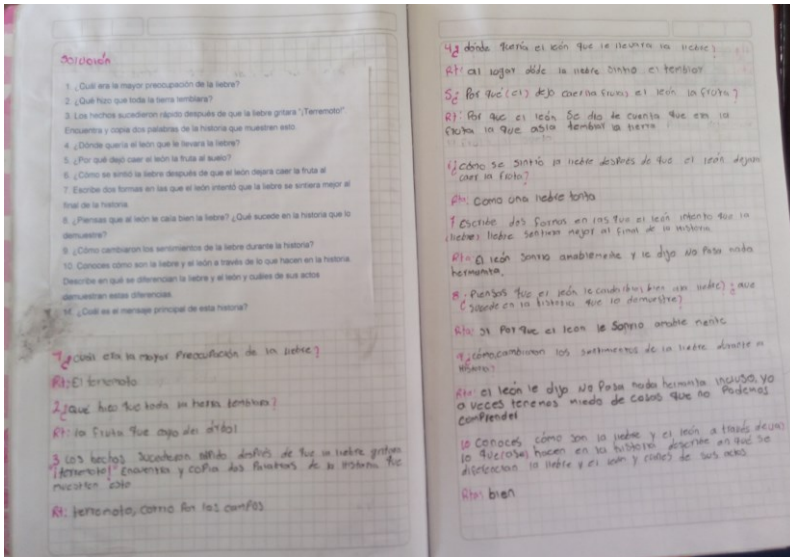 Solución
1. ¿Cuál era la mayor preocupación de la liebre?
2. ¿Qué hizo que toda la tierra temblara?
3. Los hechos sucedieron rápido después de que la liebre gritara "¡Terremoto!".
Encuentra y copia dos palabras de la historia que muestran esto.
4. ¿Dónde quería el león que le llevara la liebre?
5. ¿Por qué dejó caer el león la fruta al suelo?
6. ¿Cómo se sintió la liebre después de que el león dejara caer la fruta al
7. Escribe dos formas en las que el león intentó que la liebre se sintiera mejor al
final de la historia.
8. ¿Piensas que al león le caía bien la liebre? ¿Qué sucede en la historia que lo
demuestra?
9. ¿Cómo cambiaron los sentimientos de la liebre durante la historia?
10. Conoces cómo son la liebre y el león a través de lo que hacen en la historia.
Describe en qué se diferencian la liebre y el león y cuáles de sus actos
demuestran estas diferencias.
¿Cuál es el mensaje principal de esta historia?
1¿cuál era la mayor Preocupación de la liebre?
Rt: El terremoto
2¿qué hizo que toda la tierra temblara?
Rt: la fruta que callo del árbol
3 Los hechos sucedieron rápido después de que la liebre gritara
"¡terremoto!" encuentra y copia dos Palabras de la historia que
muestren esto
Rt: terremoto, corrio Por los campos
4¿ dónde quería el león que le llevara la liebre?
Rt: al lugar dóde la liebre sintio el temblor
5¿ Por qué (el) dejo caer el león la fruta?
Rt: Por que el león se dio de cuenta que era la
fruta la que asia temblar la tierra
6¿cómo se sintió la liebre después de que el león dejara
caer la fruta?
Rta: Como una liebre tonta
7 Escribe dos formas en las que el león intento que la
liebre sentiera mejor al final de la historia
Rta: el león Sonrio amablemente y le dijo No Pasa nada
hermanita.
8. Piensas que el león le bien liebre) ¿que
sucede en la historia que lo demuestre)
Rta: si Por que el leon le Sonrio amable mente
9¿cómo.cambiaron los sentimientos de la liebre durante la
historia?
Rta: el león le dijo No Pasa nada hermanita incluso, yo
a veces tenemos miedo de cosas que no Podemos
comprender
10 conoces cómo son la liebre y el león a través de
lo que hacen en la historia describe en qué se
diferencian la liebre y el león y cuáles de sus actos
Rta: bien